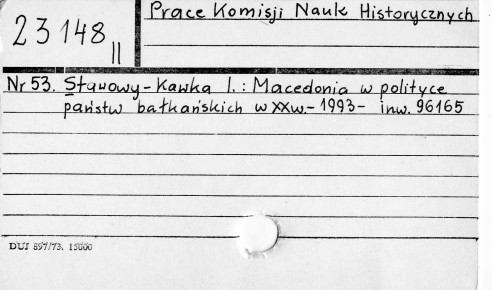 23148 II
Prace Komisji Nauk Historycznych
Nr 53. Stawowy-Kawka I.: Macedonia w polityce
państw bałkańskich w XXw. - 1993 - inw. 96165
DUJ 897/73. 15000